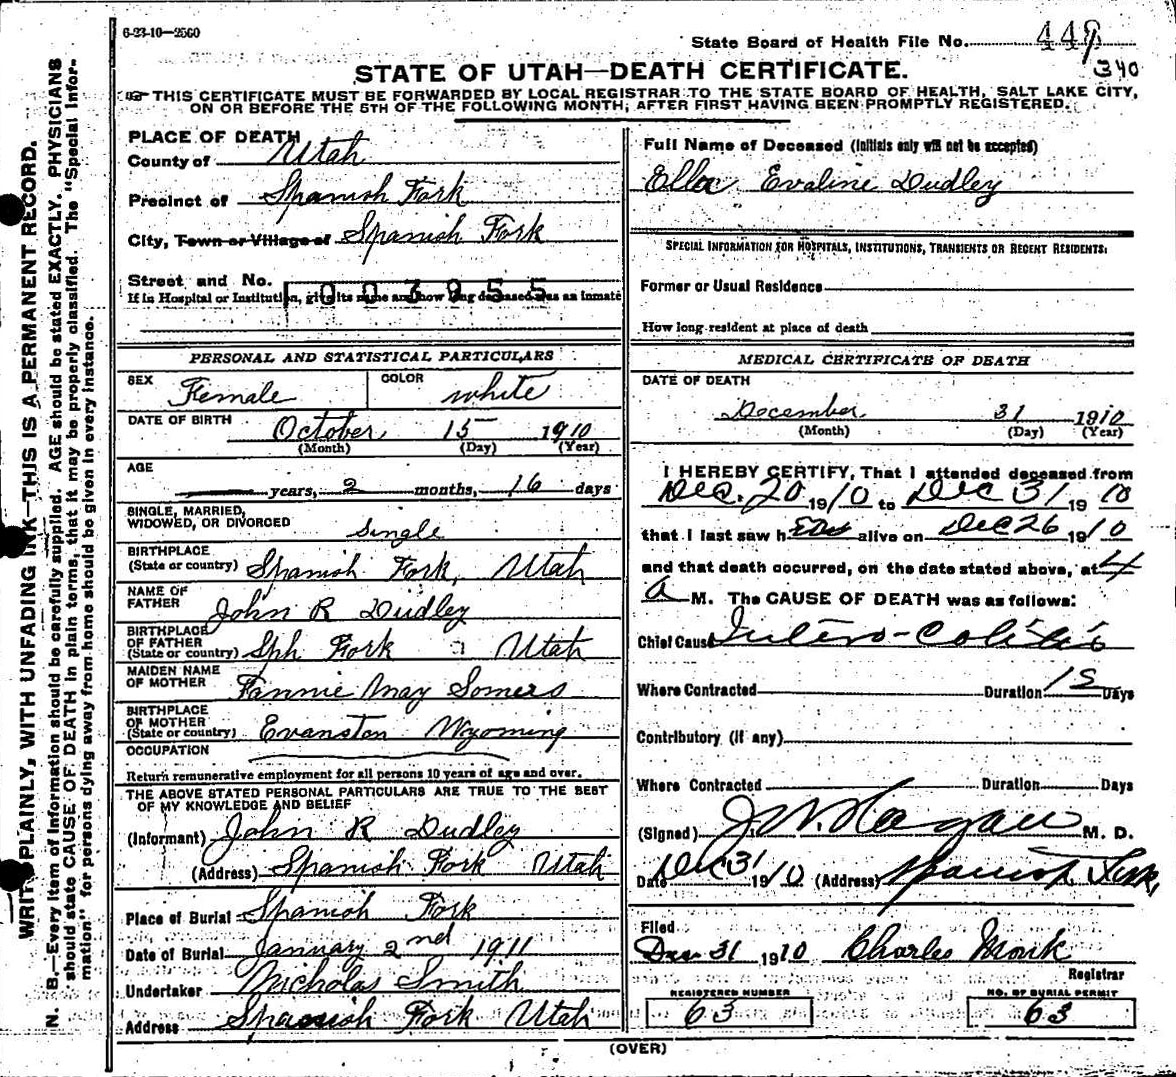 6-23-10—2560
State Board of Health File No.
340
STATE OF UTAH—DEATH CERTIFICATE.
☞ THIS CERTIFICATE MUST BE FORWARDED BY LOCAL REGISTRAR TO THE STATE BOARD OF HEALTH, SALT LAKE CITY,
ON OR BEFORE THE 5TH OF THE FOLLOWING MONTH, AFTER FIRST HAVING BEEN PROMPTLY REGISTERED.
WRITE PLAINLY, WITH UNFADING INK—THIS IS A PERMANENT RECORD.
N. B.—Every item of information should be carefully supplied. AGE should be stated EXACTLY. PHYSICIANS
should state CAUSE OF DEATH in plain terms, that it may be properly classified. The "Special Infor-
mation" for persons dying away from home should be given in every instance.
PLACE OF DEATH
County of Utah
Precinct of Spanish Fork
City, Town or Village of Spanish Fork
Street and No.
003955
If in Hospital or Institution, give its name and how long deceased was an inmate
PERSONAL AND STATISTICAL PARTICULARS
SEX Female COLOR white
DATE OF BIRTH October 15 1910
(Month) (Day) (Year)
AGE
years, 2 months, 16 days
SINGLE, MARRIED,
WIDOWED, OR DIVORCED Single
BIRTHPLACE
(State or country) Spanish Fork, Utah
NAME OF
FATHER John R Dudley
BIRTHPLACE
OF FATHER
(State or country) Sph Fork Utah
MAIDEN NAME
OF MOTHER Fannie May Somers
BIRTHPLACE
OF MOTHER
(State or country) Evanston Wyoming
OCCUPATION
Return remunerative employment for all persons 10 years of age and over.
THE ABOVE STATED PERSONAL PARTICULARS ARE TRUE TO THE BEST
OF MY KNOWLEDGE AND BELIEF
(Informant) John R Dudley
(Address) Spanish Fork Utah
Place of Burial Spanish Fork
Date of Burial January 2nd 1911
Undertaker Nicholas Smith
Address Spanish Fork Utah
Full Name of Deceased (Initials only will not be accepted)
Ella Evaline Dudley
SPECIAL INFORMATION FOR HOSPITALS, INSTITUTIONS, TRANSIENTS OR RECENT RESIDENTS:
Former or Usual Residence
How long resident at place of death
MEDICAL CERTIFICATE OF DEATH
DATE OF DEATH
December 31 1910
(Month) (Day) (Year)
I HEREBY CERTIFY, That I attended deceased from
Dec. 20 1910 to Dec 31 19 10
that I last saw h alive on Dec 26 1910
and that death occurred, on the date stated above, at 4
a M. The CAUSE OF DEATH was as follows:
Chief Cause Intero-Colitis
Where Contracted Duration 12 Days
Contributory (if any)
Where Contracted Duration Days
(Signed) J. W. Hagan M. D.
Date Dec 31 1910 (Address) Spanish Fork,
Filed
Dec 31 1910 Charles Monk
Registrar
REGISTERED NUMBER
63
NO. OF BURIAL PERMIT
63
(OVER)